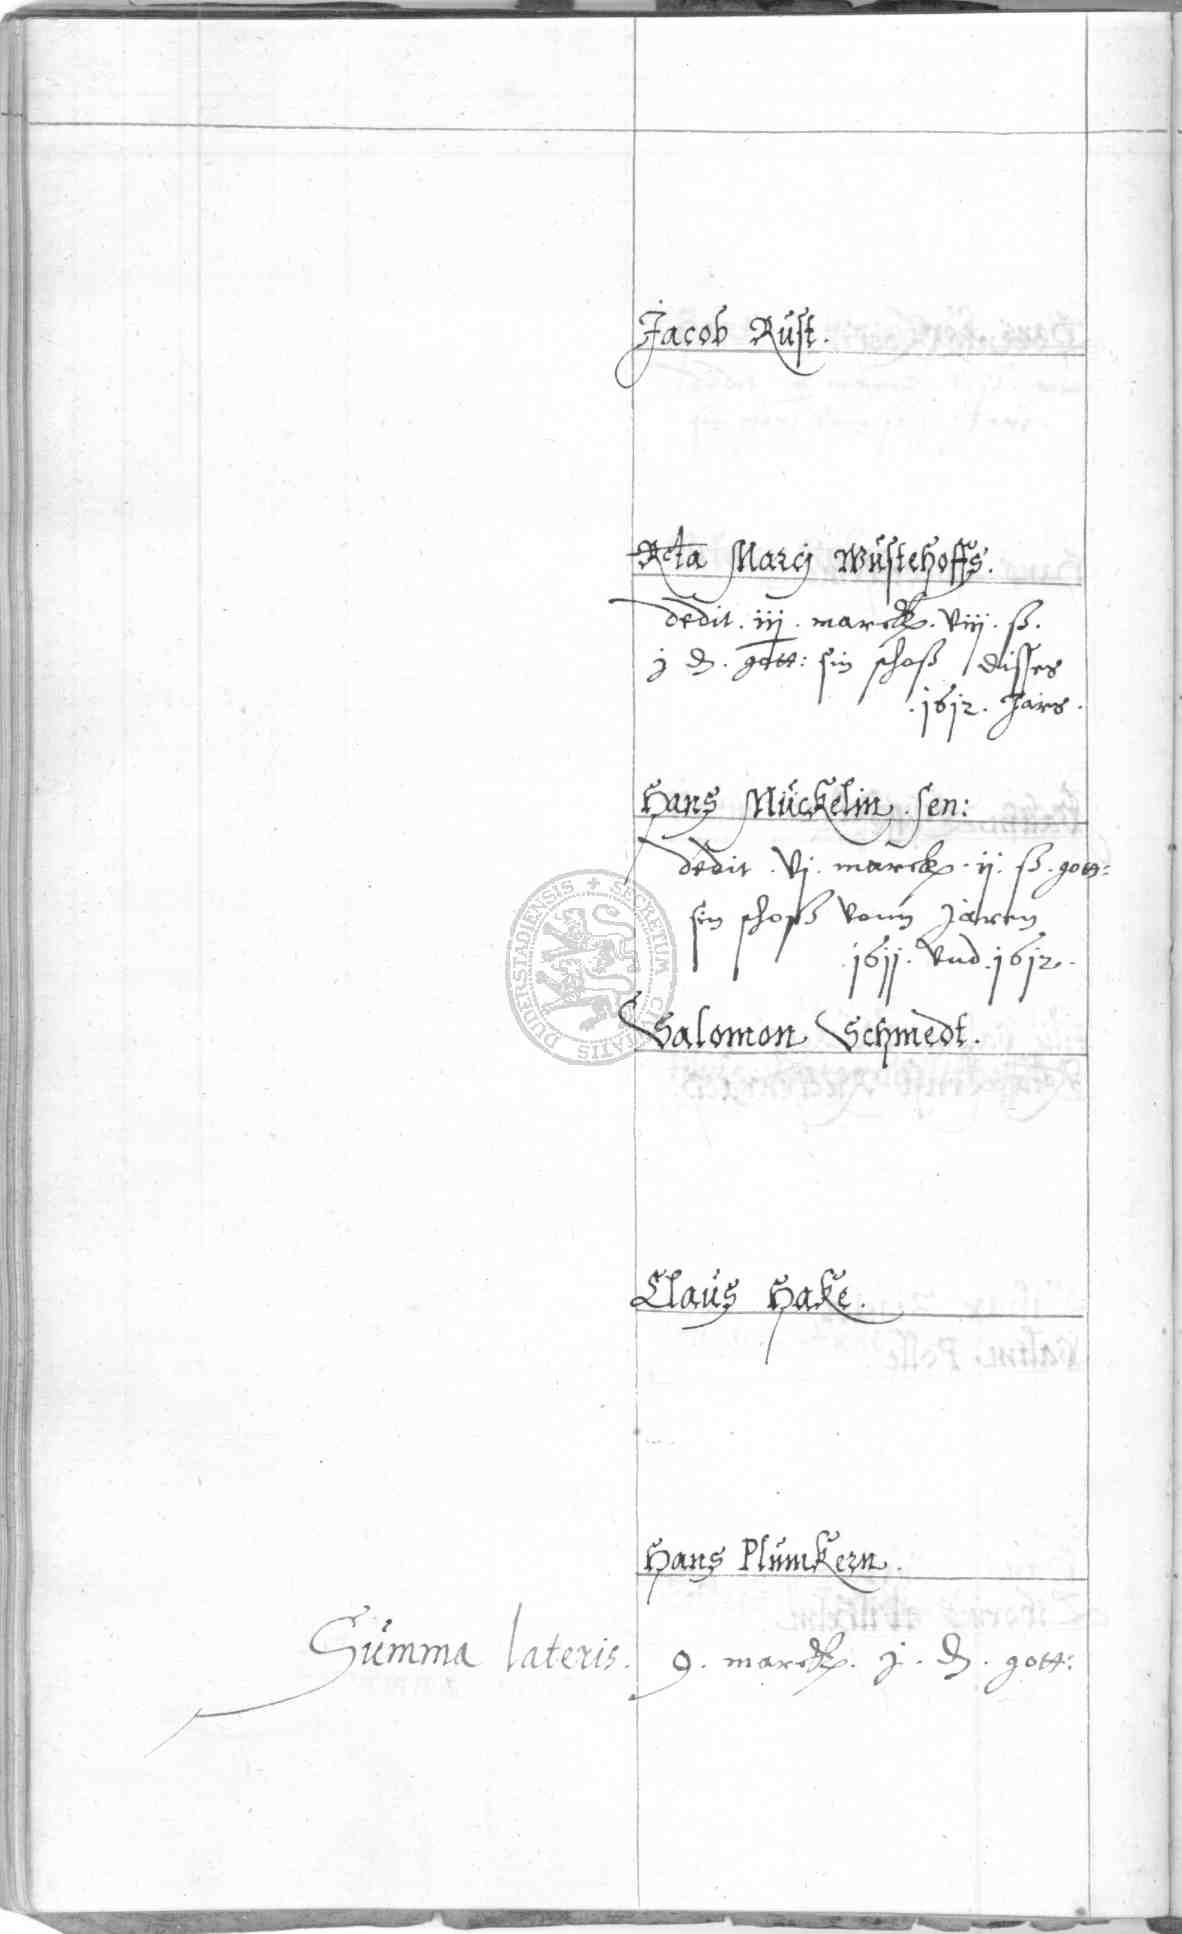 Jacob Rust.
Rcta Marcj Wustehoffs.
dedit. iij. marck. viij. ß.
j ₰. gott: sin schoß disses
.1612. Jars.
Hans Nückelin. sen:
dedit. vj. marck. ij. ß. gott:
sin schoß vonn Jaren
.1611. vnd .1612.
DUDERSTADIENSIS + SECRETUM CIVITATIS
Salomon Schmedt.
Claus Hake.
Hans Plumkern.
Summa lateris. 9. marck. j. ₰. gott: